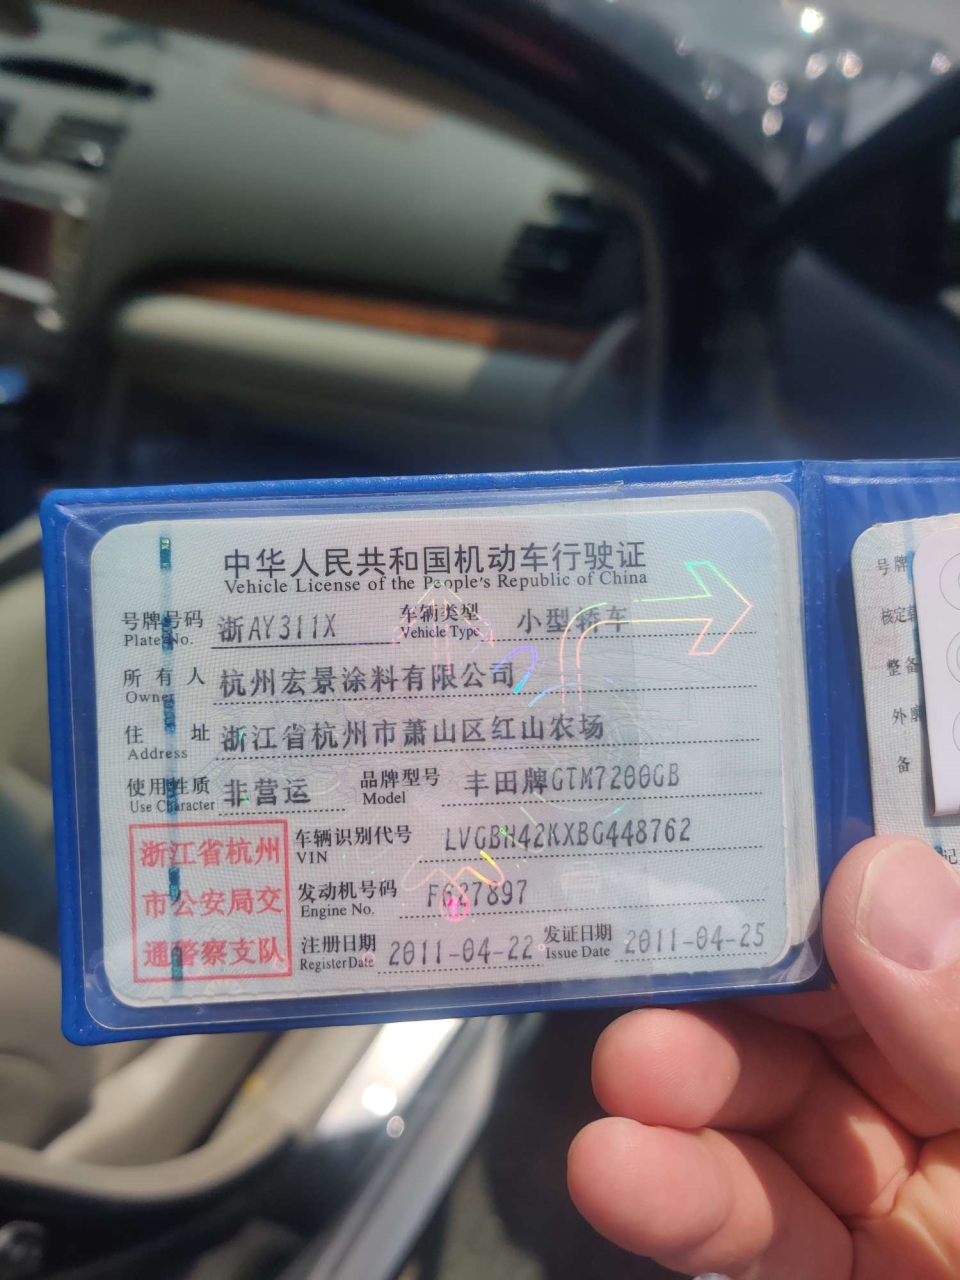 中华人民共和国机动车行驶证
Vehicle License of the People's Republic of China
号牌号码 浙AY311X 车辆类型 小型轿车
Plate No. Vehicle Type
所有人 杭州宏景涂料有限公司
Owner
住址 浙江省杭州市萧山区红山农场
Address
使用性质 非营运 品牌型号 丰田牌GTM7200GB
Use Character Model
浙江省杭州
市公安局交
通警察支队
车辆识别代号 LVGBH42KXBG448762
VIN
发动机号码 F627897
Engine No.
注册日期 2011-04-22 发证日期 2011-04-25
Register Date Issue Date
号牌
核定
整备
外廓
备
记